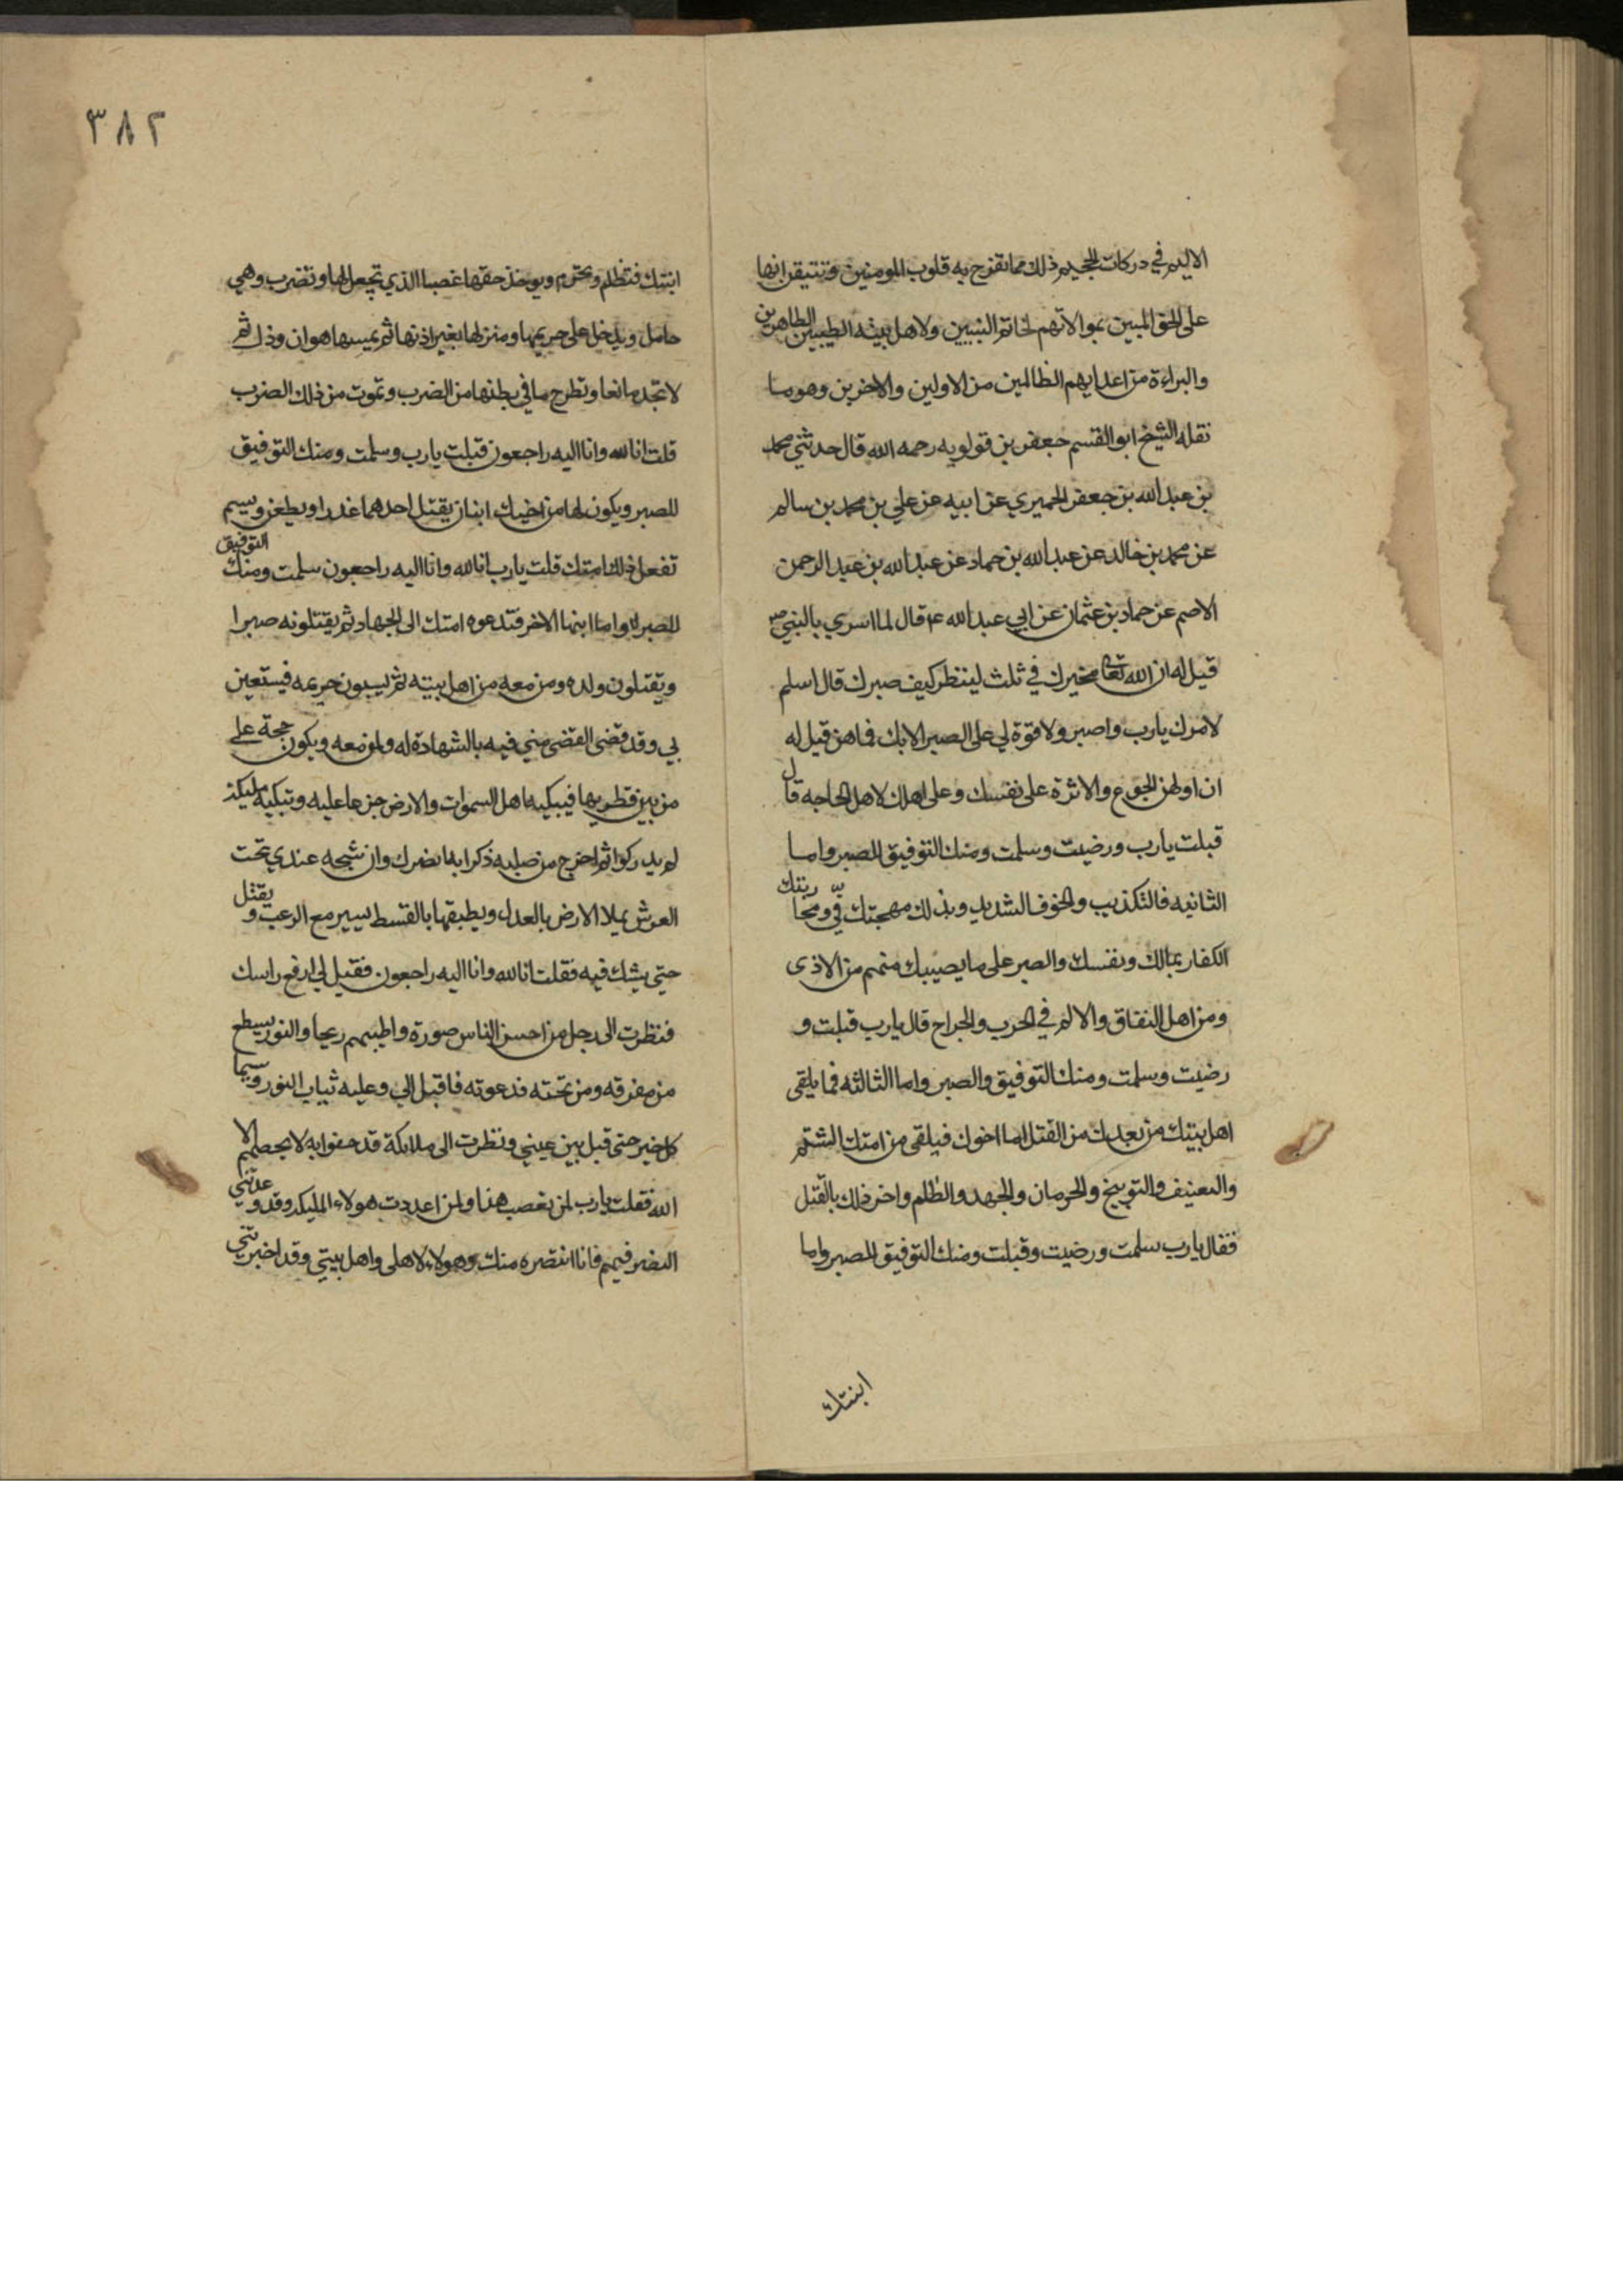 الاليم في دركات الجحيم ذلك مما تفرح به قلوب المومنين وتتيقن انها
على الحق المبين بموالاتهم لخاتم النبيين ولاهل بيته الطيبين الطاهرين
والبراءة من اعدايهم الظالمين من الاولين والاخرين وهو ما
نقله الشيخ ابو القسم جعفر بن قولويه رحمه الله قال حدثني محمد
بن عبد الله بن جعفر الحميري عن ابيه عن علي بن محمد بن سالم
عن محمد بن خالد عن عبد الله بن حماد عن عبد الله بن عبد الرحمن
الاصم عن حماد بن عثمان عن ابي عبد الله ع قال لما اسري بالنبي ص
قيل له ان الله تعا مخيرك في ثلث لينظر كيف صبرك قال اسلم
لامرك يارب واصبر ولا قوة لي على الصبر الا بك فما هن قيل له
ان اولهن الجوع والاثرة على نفسك وعلى اهلك لاهل الحاجه قال
قبلت يارب ورضيت وسلمت ومنك التوفيق للصبر واما
الثانيه فالتكذيب والخوف الشديد وبذلك مهجتك فيّ ومحاربتك
الكفار بمالك ونفسك والصبر على ما يصيبك منهم من الاذى
ومن اهل النفاق والالم في الحرب والجراح قال يارب قبلت و
رضيت وسلمت ومنك التوفيق والصبر واما الثالثه فما يلقى
اهل بيتك من بعدك من القتل اما اخوك فيلقى من امتك الشتم
والتعنيف والتوبيخ والحرمان والجهد والظلم واخر ذلك بالقتل
فقال يارب سلمت ورضيت وقبلت ومنك التوفيق للصبر واما
ابنتك
٣٨٢
ابنتك فتظلم وتحرم ويوخذ حقها غصبا الذي تجعل لها وتضرب وهي
حامل ويدخل على حريمها ومنزلها بغير اذنها ثم يمسها هوان وذل ثم
لا تجد مانعا وتطرح ما في بطنها من الضرب وتموت من ذلك الضرب
قلت انا لله وانا اليه راجعون قبلت يارب وسلمت ومنك التوفيق
للصبر ويكون لها من اخيك ابنان يقتل احدهما غدرا ويطعن ويسم
تفعل ذلك امتك قلت يارب انا لله وانا اليه راجعون سلمت ومنك التوفيق
للصبر واما ابنها الاخر فتدعوه امتك الى الجهاد ثم يقتلونه صبرا
ويقتلون ولده ومن معه من اهل بيته ثم يسبون حريمه فيستعين
بي وقد قضى القضى مني فيه بالشهادة له ولمن معه ويكون حجة على
من بين قطريها فيبكيه اهل السموات والارض جزعا عليه وتبكيه مليكة
لم يدركوا ثم اخرج من صلبه ذكرا به انصرك وان شبحه عندي تحت
العرش يملا الارض بالعدل ويطبقها بالقسط يسير مع الرعب ويقتل
حتي يشك فيه فقلت انا لله وانا اليه راجعون فقيل لي ارفع راسك
فنظرت الى رجل من احسن الناس صورة واطيبهم ريحا والنور يسطع
من مفرقه ومن تحته فدعوته فاقبل الي وعليه ثياب النور وسيما
كل خير حتى قبل بين عيني ونظرت الى ملايكة قد حفوا به لا يحصيهم الا
الله فقلت يارب لمن يغصب هذا ولمن اعددت هولاء المليكه وقد وعدتني
النصر فيهم فانا انتضره منك وهولاء لاهلى واهل بيتي وقد اخبرتني